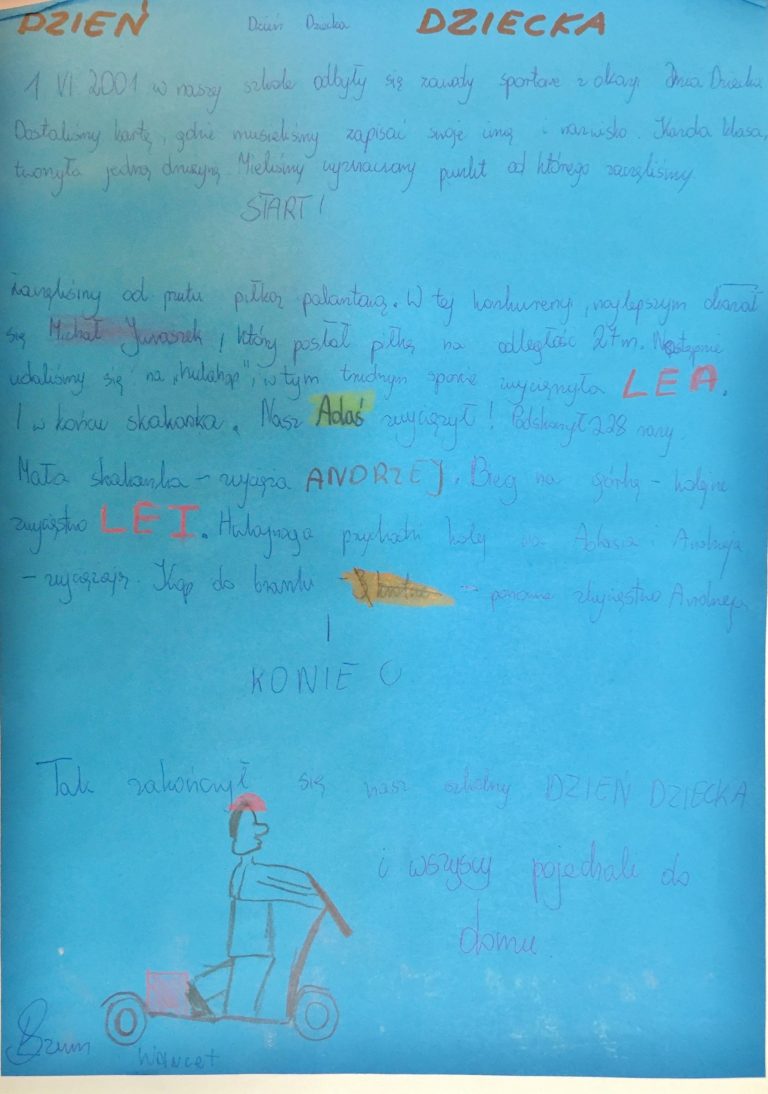 DZIEŃ Dzień Dziecka DZIECKA
1 VI 2001 w naszej szkole odbyły się zawody sportowe z okazji Dnia Dziecka
Dostaliśmy kartę, gdzie musieliśmy zapisać swoje imię i nazwisko. Każda klasa,
tworzyła jedną drużynę. Mieliśmy wyznaczony punkt od którego zaczęliśmy
START!
Zaczęliśmy od rzutu piłką palantową. W tej konkurencji, najlepszym okazał
się Michał, który posłał piłkę na odległość 27m. Następnie
udaliśmy się na "hulahop", w tym trudnym sporcie zwyciężyła LEA.
I w końcu skakanka. Nasz Adaś zwyciężył! Podskoczył 228 razy.
Mała skakanka – zwycięża ANDRZEJ. Bieg na górkę – kolejne
zwycięstwo LEI. Hulajnoga przychodzi kolej na Adasia i Andrzeja
– zwyciężają. Kop do bramki – ponowne zwycięstwo Andrzeja
I
KONIEC
Tak zakończył się nasz szkolny DZIEŃ DZIECKA
i wszyscy pojechali do
domu